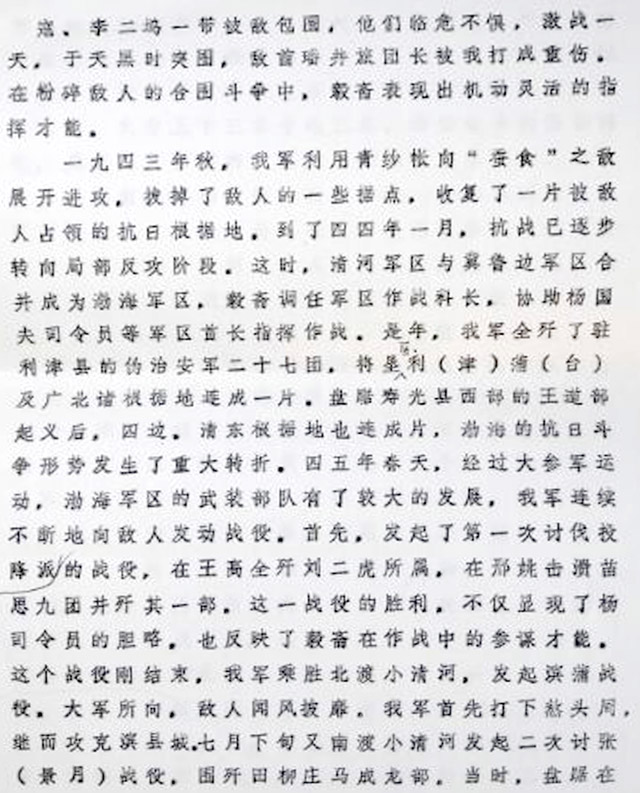 寇、李二坞一带被敌包围，他们临危不惧，激战一
天，于天黑时突围，敌首瑙井旅团长被我打成重伤。
在粉碎敌人的合围斗争中，毅斋表现出机动灵活的指
挥才能。
一九四三年秋，我军利用青纱帐向“蚕食”之敌
展开进攻，拔掉了敌人的一些据点，收复了一片被敌
人占领的抗日根据地，到了四四年一月，抗战已逐步
转向局部反攻阶段。这时，清河军区与冀鲁边军区合
并成为渤海军区，毅斋调任军区作战科长，协助杨国
夫司令员等军区首长指挥作战。是年，我军全歼了驻
利津县的伪治安军二十七团，将垦利（津）蒲（台）
及广北诸根据地连成一片。盘踞寿光县西部的王道部
起义后，四边。清东根据地也连成片，渤海的抗日斗
争形势发生了重大转折。四五年春天，经过大参军运
动，渤海军区的武装部队有了较大的发展，我军连续
不断地向敌人发动战役。首先，发起了第一次讨伐投
降派的战役，在王高全歼刘二虎所属，在邢姚击溃苗
恩九团并歼其一部。这一战役的胜利，不仅显现了杨
司令员的胆略，也反映了毅斋在作战中的参谋才能。
这个战役刚结束，我军乘胜北渡小清河，发起滨蒲战
役。大军所向，敌人闻风披靡。我军首先打下热头周，
继而攻克滨县城。七月下旬又南渡小清河发起二次讨张
（景月）战役，围歼田柳庄马成龙部。当时，盘踞在